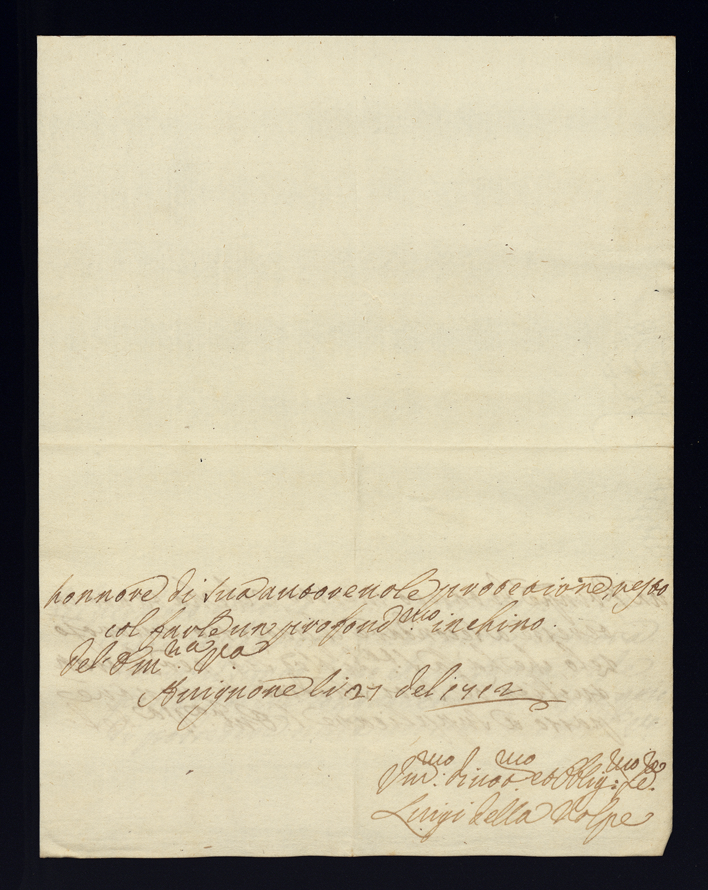 honnore di sua autoreuole protezione, resto
col farle un profond.mo inchino.
Auignone li 27 del 1712
Um.mo diuot.mo et Oblig.mo Se.re
Luigi della Volpe